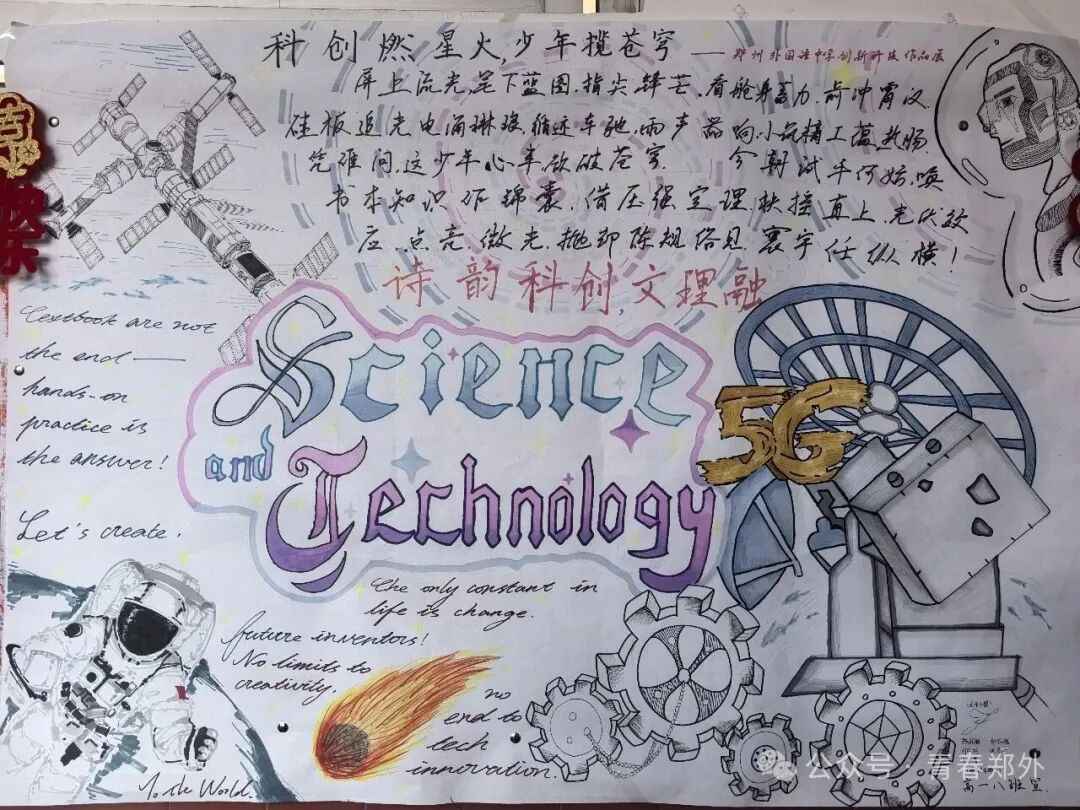 科创燃星火,少年揽苍穹
——郑州外国语中学创新科技作品展
屏上流光,笔下蓝图,指尖锋芒,看舱身蓄力,箭冲霄汉,
硅板追光,电涌琳琅,循迹车驰,雨声器响,小
凭谁问,这少年心事,欲破苍穹。 今朝试手何妨,唤
书本知识作锦囊,借压强定理,扶摇直上,光伏效
应,点亮微光,抛却陈规俗见,寰宇任纵横!
诗韵科创,文理融
Textbook are not
the end——
hands-on
practice is
the answer!
Let's create.
To the World.
Science
and
Technology
5G
The only constant in
life is change.
future inventors!
No limits to
creativity.
no
end to
tech
innovation.
高一八班 宣
公众号·青春郑外